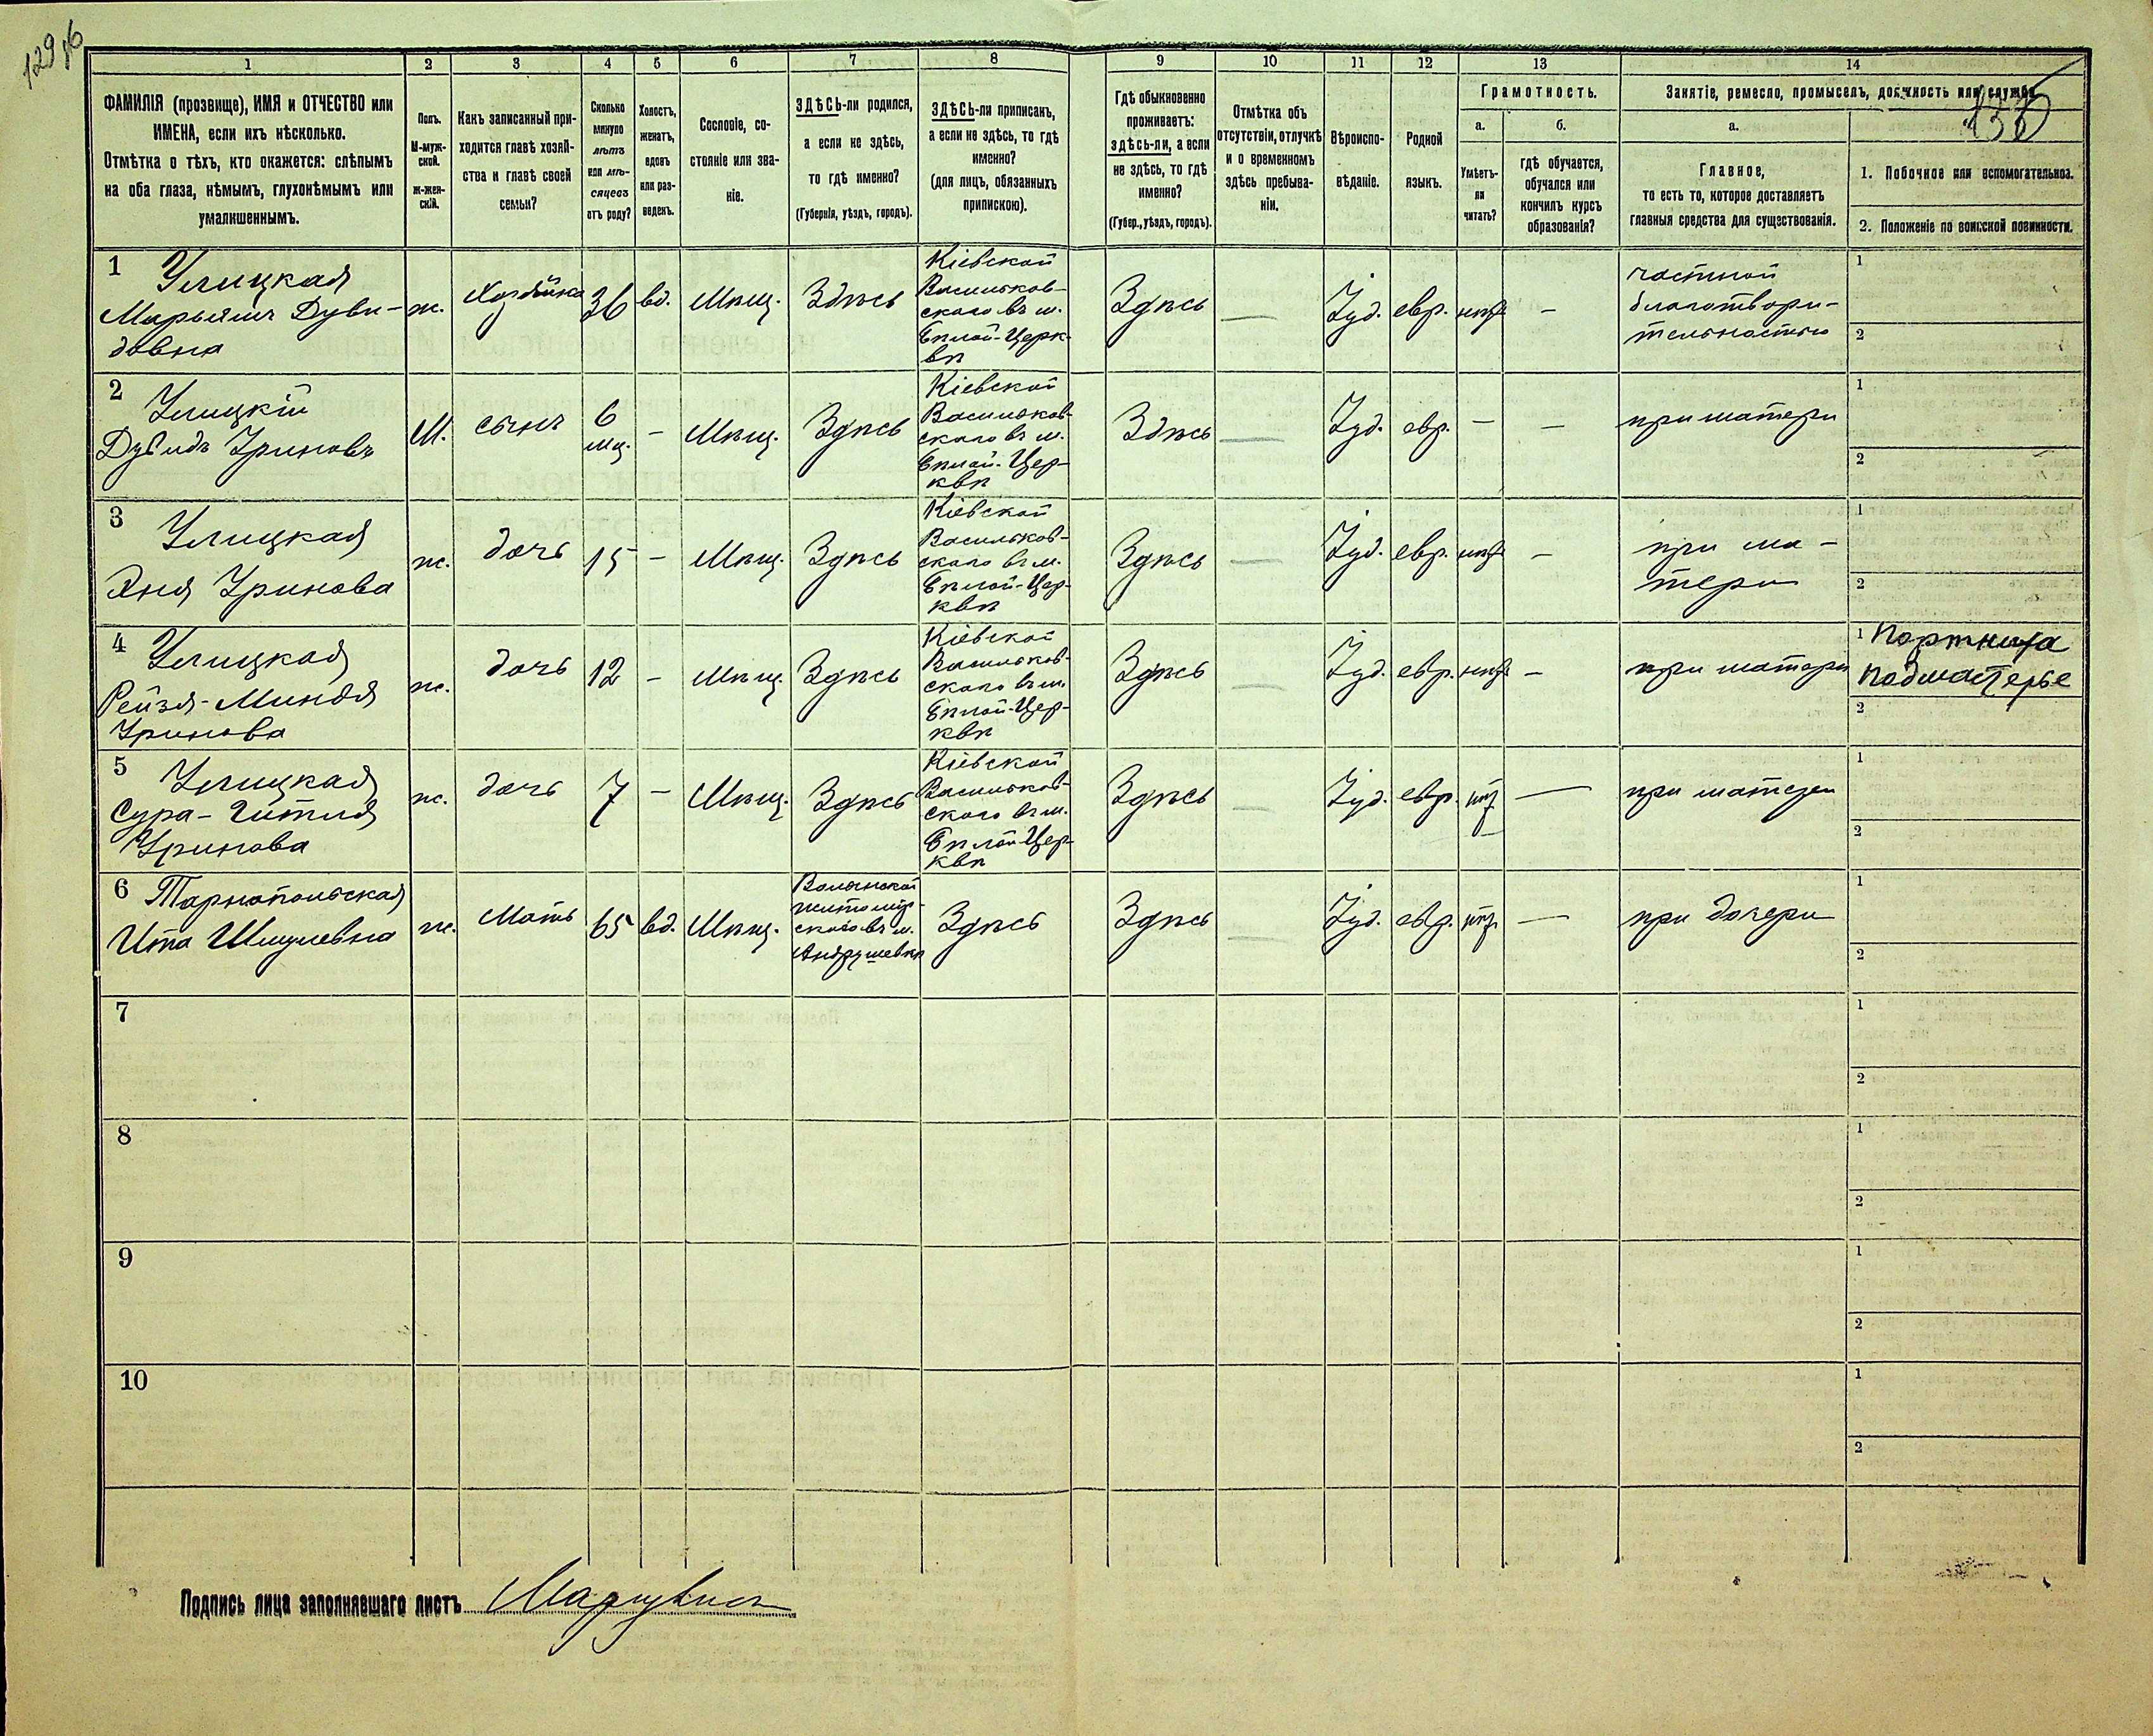 129 об
1
2
3
4
5
6
7
8
9
10
11
12
13
14
ФАМИЛІЯ (прозвище), ИМЯ и ОТЧЕСТВО или
ИМЕНА, если ихъ нѣсколько.
Отмѣтка о тѣхъ, кто окажется: слѣпымъ
на оба глаза, нѣмымъ, глухонѣмымъ или
умалишеннымъ.
Полъ.
М-муж-
ской.
ж-жен-
скій.
Какъ записанный при-
ходится главѣ хозяй-
ства и главѣ своей
семьи?
Сколько
минуло
лѣтъ
или мѣ-
сяцевъ
отъ роду?
Холостъ,
женатъ,
вдовъ
или раз-
веденъ.
Сословіе, со-
стояніе или зва-
ніе.
ЗДѢСЬ-ли родился,
а если не здѣсь,
то гдѣ именно?
(Губернія, уѣздъ, городъ).
ЗДѢСЬ-ли приписанъ,
а если не здѣсь, то гдѣ
именно?
(для лицъ, обязанныхъ
припискою).
Гдѣ обыкновенно
проживаетъ:
здѣсь-ли, а если
не здѣсь, то гдѣ
именно?
(Губер., уѣздъ, городъ).
Отмѣтка объ
отсутствіи, отлучкѣ
и о временномъ
здѣсь пребыва-
ніи.
Вѣроиспо-
вѣданіе.
Родной
языкъ.
Грамотность.
а.
Умѣетъ-
ли
читать?
б.
гдѣ обучается,
обучался или
кончилъ курсъ
образованія?
Занятіе, ремесло, промыселъ, должность или служба.
а.
Главное,
то есть то, которое доставляетъ
главныя средства для существованія.
1. Побочное или вспомогательное.
2. Положеніе по воинской повинности.
1
Улицкая
Марьямъ Дуви-
довна
ж.
Хозяйка
36
вд.
Мѣщ.
Здѣсь
Кіевской
Васильков-
скаго въ м.
Бѣлой-Церк-
вѣ
Здѣсь
—
Іуд.
евр.
нѣт
—
частной
благотвори-
тельностью
1
2
2
Улицкій
Дувидъ Уриновъ
М.
сынъ
6
мц.
—
Мѣщ.
Здѣсь
Кіевской
Васильков-
скаго въ м.
Бѣлой-Цер-
квѣ
Здѣсь
—
Іуд.
евр.
—
—
при матери
1
2
3
Улицкая
Хня Уринова
ж.
дочь
15
—
Мѣщ.
Здѣсь
Кіевской
Васильков-
скаго въ м.
Бѣлой-Цер-
квѣ
Здѣсь
—
Іуд.
евр.
нѣт
—
при ма-
тери
1
2
4
Улицкая
Рейзя-Миндя
Уринова
ж.
дочь
12
—
Мѣщ.
Здѣсь
Кіевской
Васильков-
скаго въ м.
Бѣлой-Цер-
квѣ
Здѣсь
—
Іуд.
евр.
нѣт
—
при матери
1 Портниха
Подмастерье
2
5
Улицкая
Сура-Гитля
Уринова
ж.
дочь
7
—
Мѣщ.
Здѣсь
Кіевской
Васильков-
скаго въ м.
Бѣлой-Цер-
квѣ
Здѣсь
—
Іуд.
евр.
нѣт
—
при матери
1
2
6 Тарнопольская
Ита Шмулевна
ж.
Мать
65
вд.
Мѣщ.
Волынской
Житомир-
скаго въ м.
Андрушевкѣ
Здѣсь
Здѣсь
—
Іуд.
евр.
нѣт
—
при дочери
1
2
7
1
2
8
1
2
9
1
2
10
1
2
Подпись лица заполнявшаго листъ